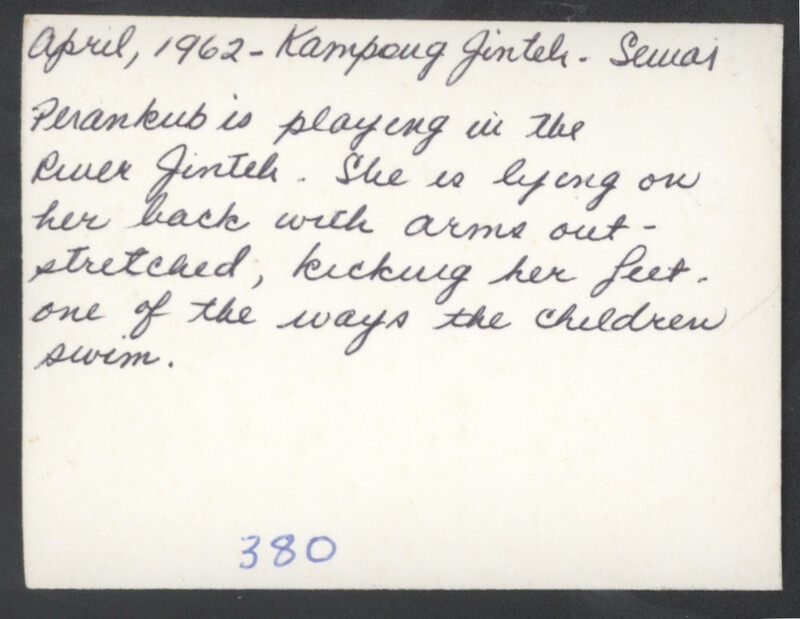 April, 1962 - Kampong Jinteh - Semai
Perankub is playing in the
River Jinteh. She is lying on
her back with arms out-
stretched, kicking her feet.
one of the ways the children
swim.
380